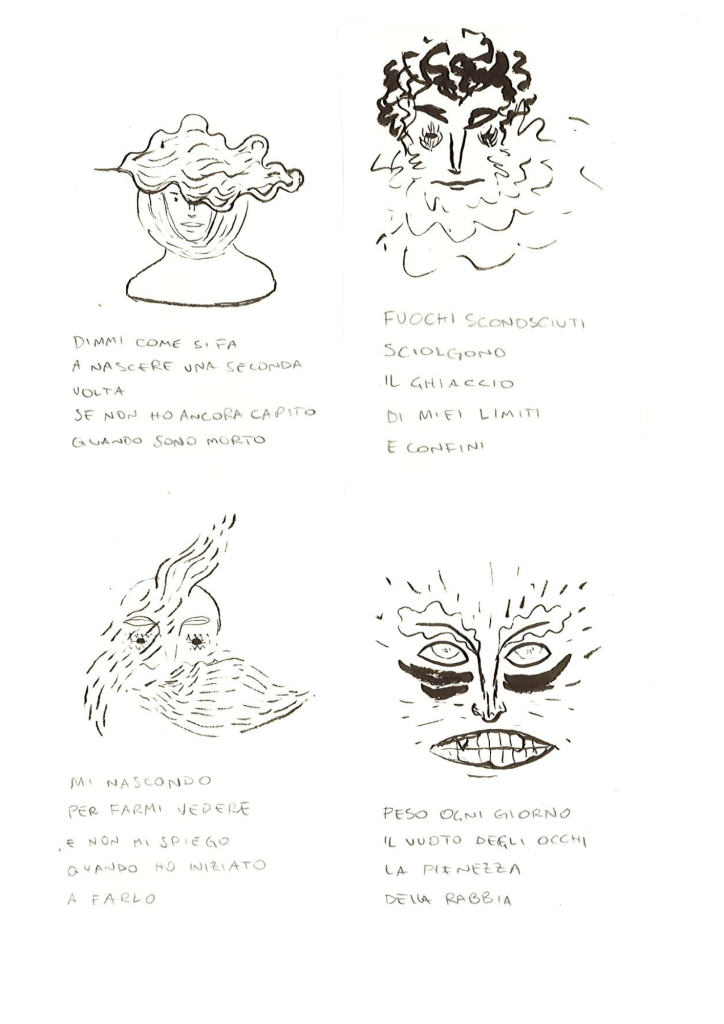 DIMMI COME SI FA
A NASCERE UNA SECONDA
VOLTA
SE NON HO ANCORA CAPITO
QUANDO SONO MORTO
FUOCHI SCONOSCIUTI
SCIOLGONO
IL GHIACCIO
DI MIEI LIMITI
E CONFINI
MI NASCONDO
PER FARMI VEDERE
E NON MI SPIEGO
QUANDO HO INIZIATO
A FARLO
PESO OGNI GIORNO
IL VUOTO DEGLI OCCHI
LA PIENEZZA
DELLA RABBIA